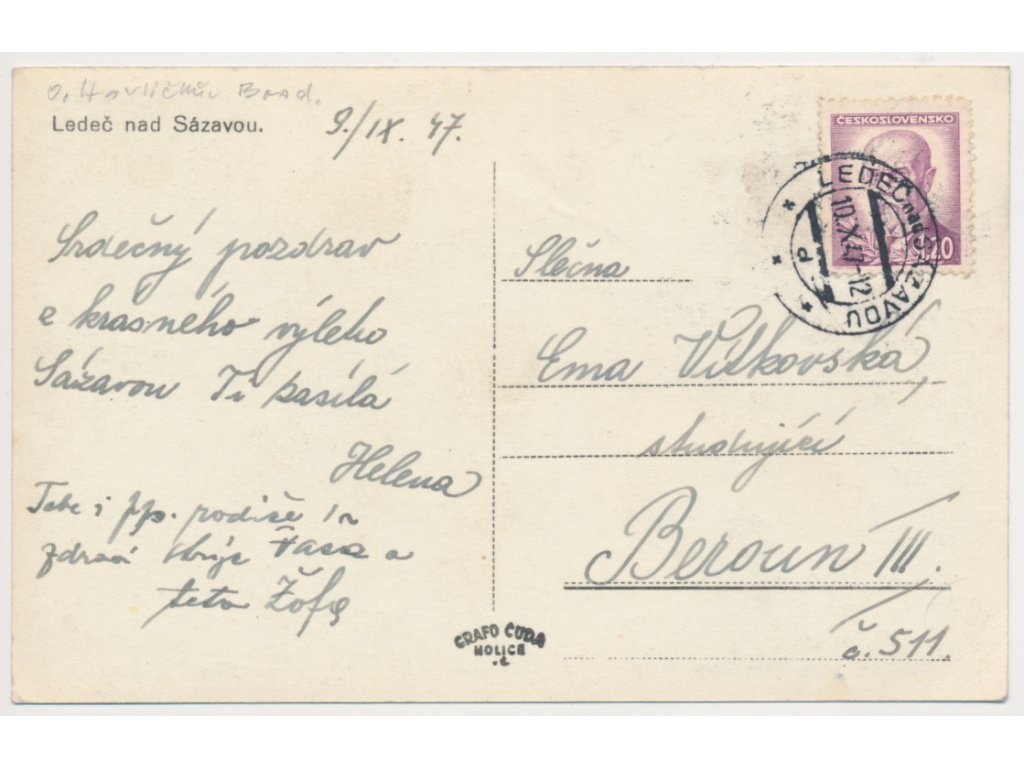 o. Havlíčkův Brod.
Ledeč nad Sázavou.
9./IX. 47.
Srdečný pozdrav
z krásného výletu
Sázavou Ti zasílá
Helena
Tebe i pp. rodiče
zdraví strýc Vašek a
teta Žofie
GRAFO ČUDA
HOLICE
ČESKOSLOVENSKO
1.20
LEDEČ nad SÁZAVOU
10.X.47-12
Slečna
Ema Vítkovská,
studující
Beroun III.
č. 511.